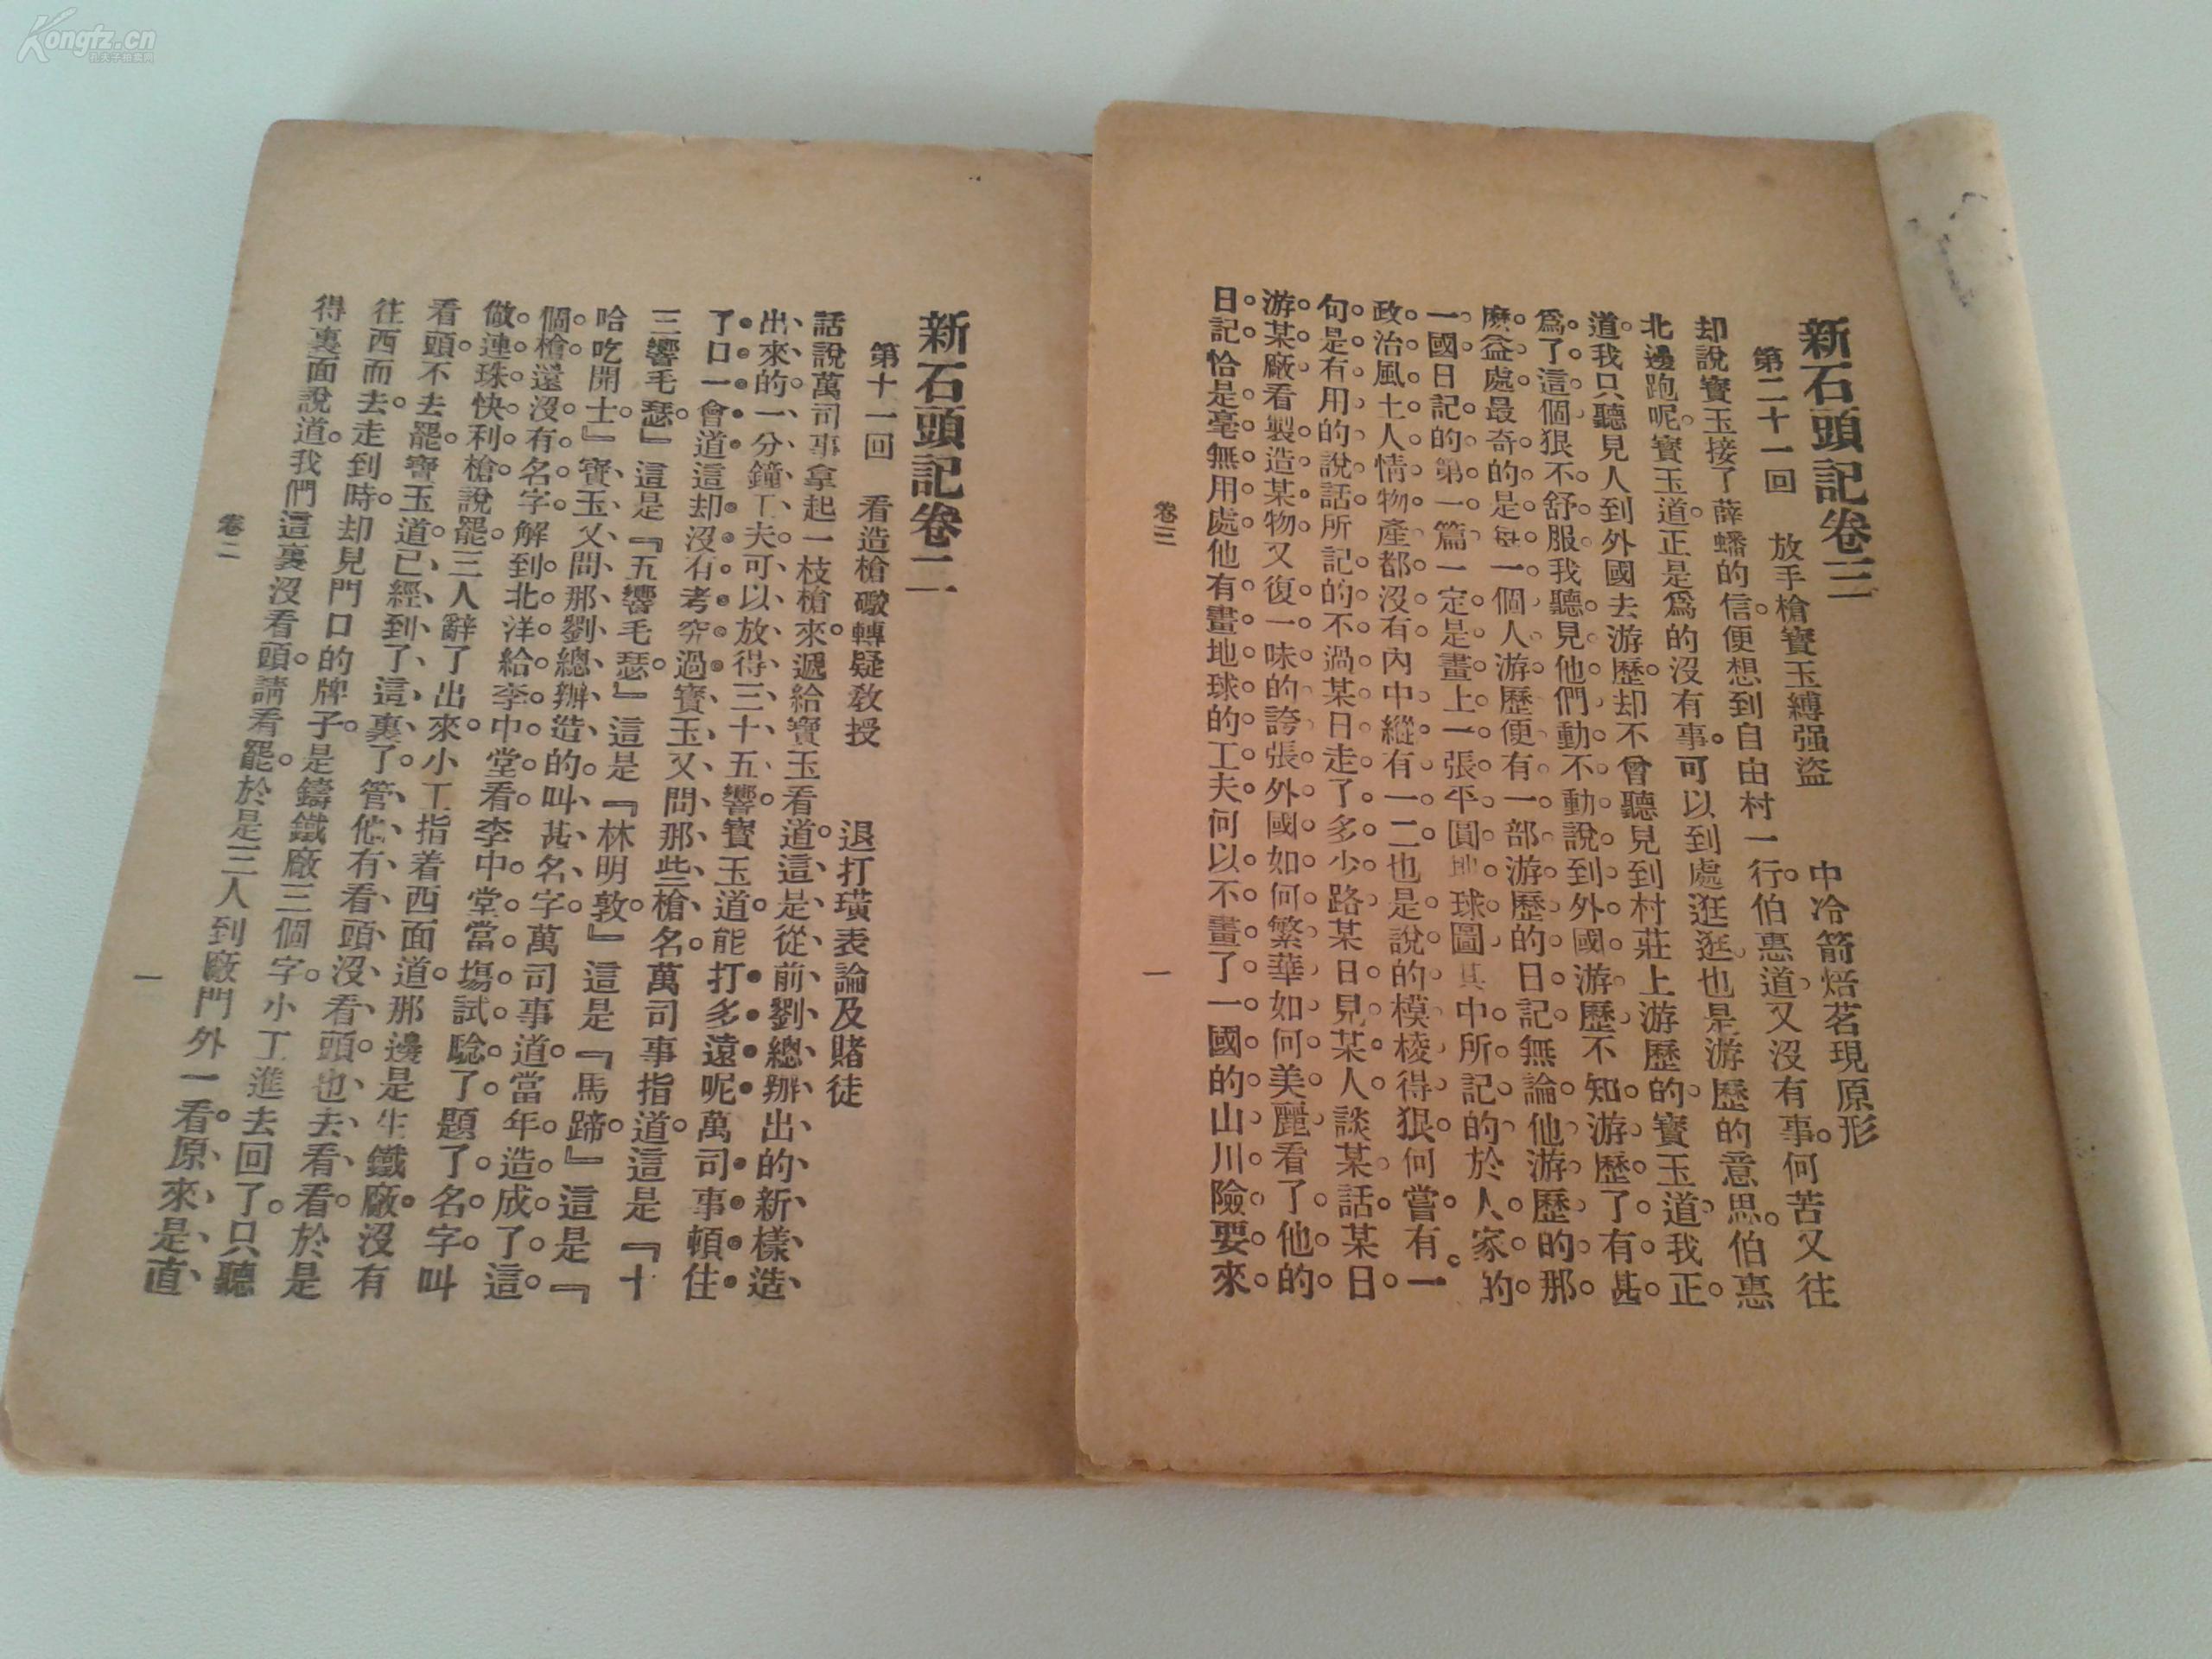 新石頭記卷三
第二十一回　放手槍寶玉縛强盜　中冷箭焙茗現原形
却說寶玉接了薛蟠的信。便想到自由村一行。伯惠道又沒有事。何苦又往
北邊跑呢。寶玉道正是爲的沒有事。可以到處逛逛。也是游歷的意思。伯惠
道。我只聽見人到外國去游歷。却不曾聽見到村莊上游歷的。寶玉道。我正
爲了這個狠不舒服。我聽見他們動不動說到外國游歷。不知游歷了有甚
麽益處。最奇的是每一個人游歷。便有一部游歷的日記。無論他游歷的那
一國。日記的第一篇一定是畫上一張平圓地球圖。其中所記的於人家的
政治風土人情物產都沒有。內中縱有一二。也是說的模棱得狠。何嘗有一
句是有用的說話。所記的不過某日走了多少路。某日見某人。談某話。某日
游某廠。看製造某物。又復一味的誇張外國如何繁華。如何美麗。看了他的
日記。恰是毫無用處。他有畫地球的工夫。何以不畫了一國的山川險要來
卷三
一
新石頭記卷二
第十一回　看造槍礮轉疑敎授　退打璜表論及賭徒
話說萬司事拿起一枝槍來。遞給寶玉看道。這是從前劉總辦出的新樣造
出來的。一分鐘工夫。可以放得三十五響。寶玉道。能打多遠呢。萬司事頓住
了口。一會道。這却沒有考究過。寶玉又問那些槍名。萬司事指道。這是『十
三響毛瑟。』這是『五響毛瑟。』這是『林明敦。』這是『馬蹄。』這是『
哈吃開士。』寶玉又問那劉總辦造的。叫甚名字。萬司事道。當年造成了這
個槍。還沒有名字。解到北洋給李中堂看。李中堂當塲試騐了。題了名字叫
做連珠快利槍。說罷。三人辭了出來。小工指着西面道。那邊是生鐵廠。沒有
看頭。不去罷。寶玉道。已經到了這裏了。管他有看頭沒看頭。也去看看。於是
往西而去。走到時。却見門口的牌子。是鑄鐵廠三個字。小工進去回了。只聽
得裏面說道。我們這裏沒看頭。請看罷。於是三人到廠門外一看。原來是直
卷二
一
Kongfz.cn